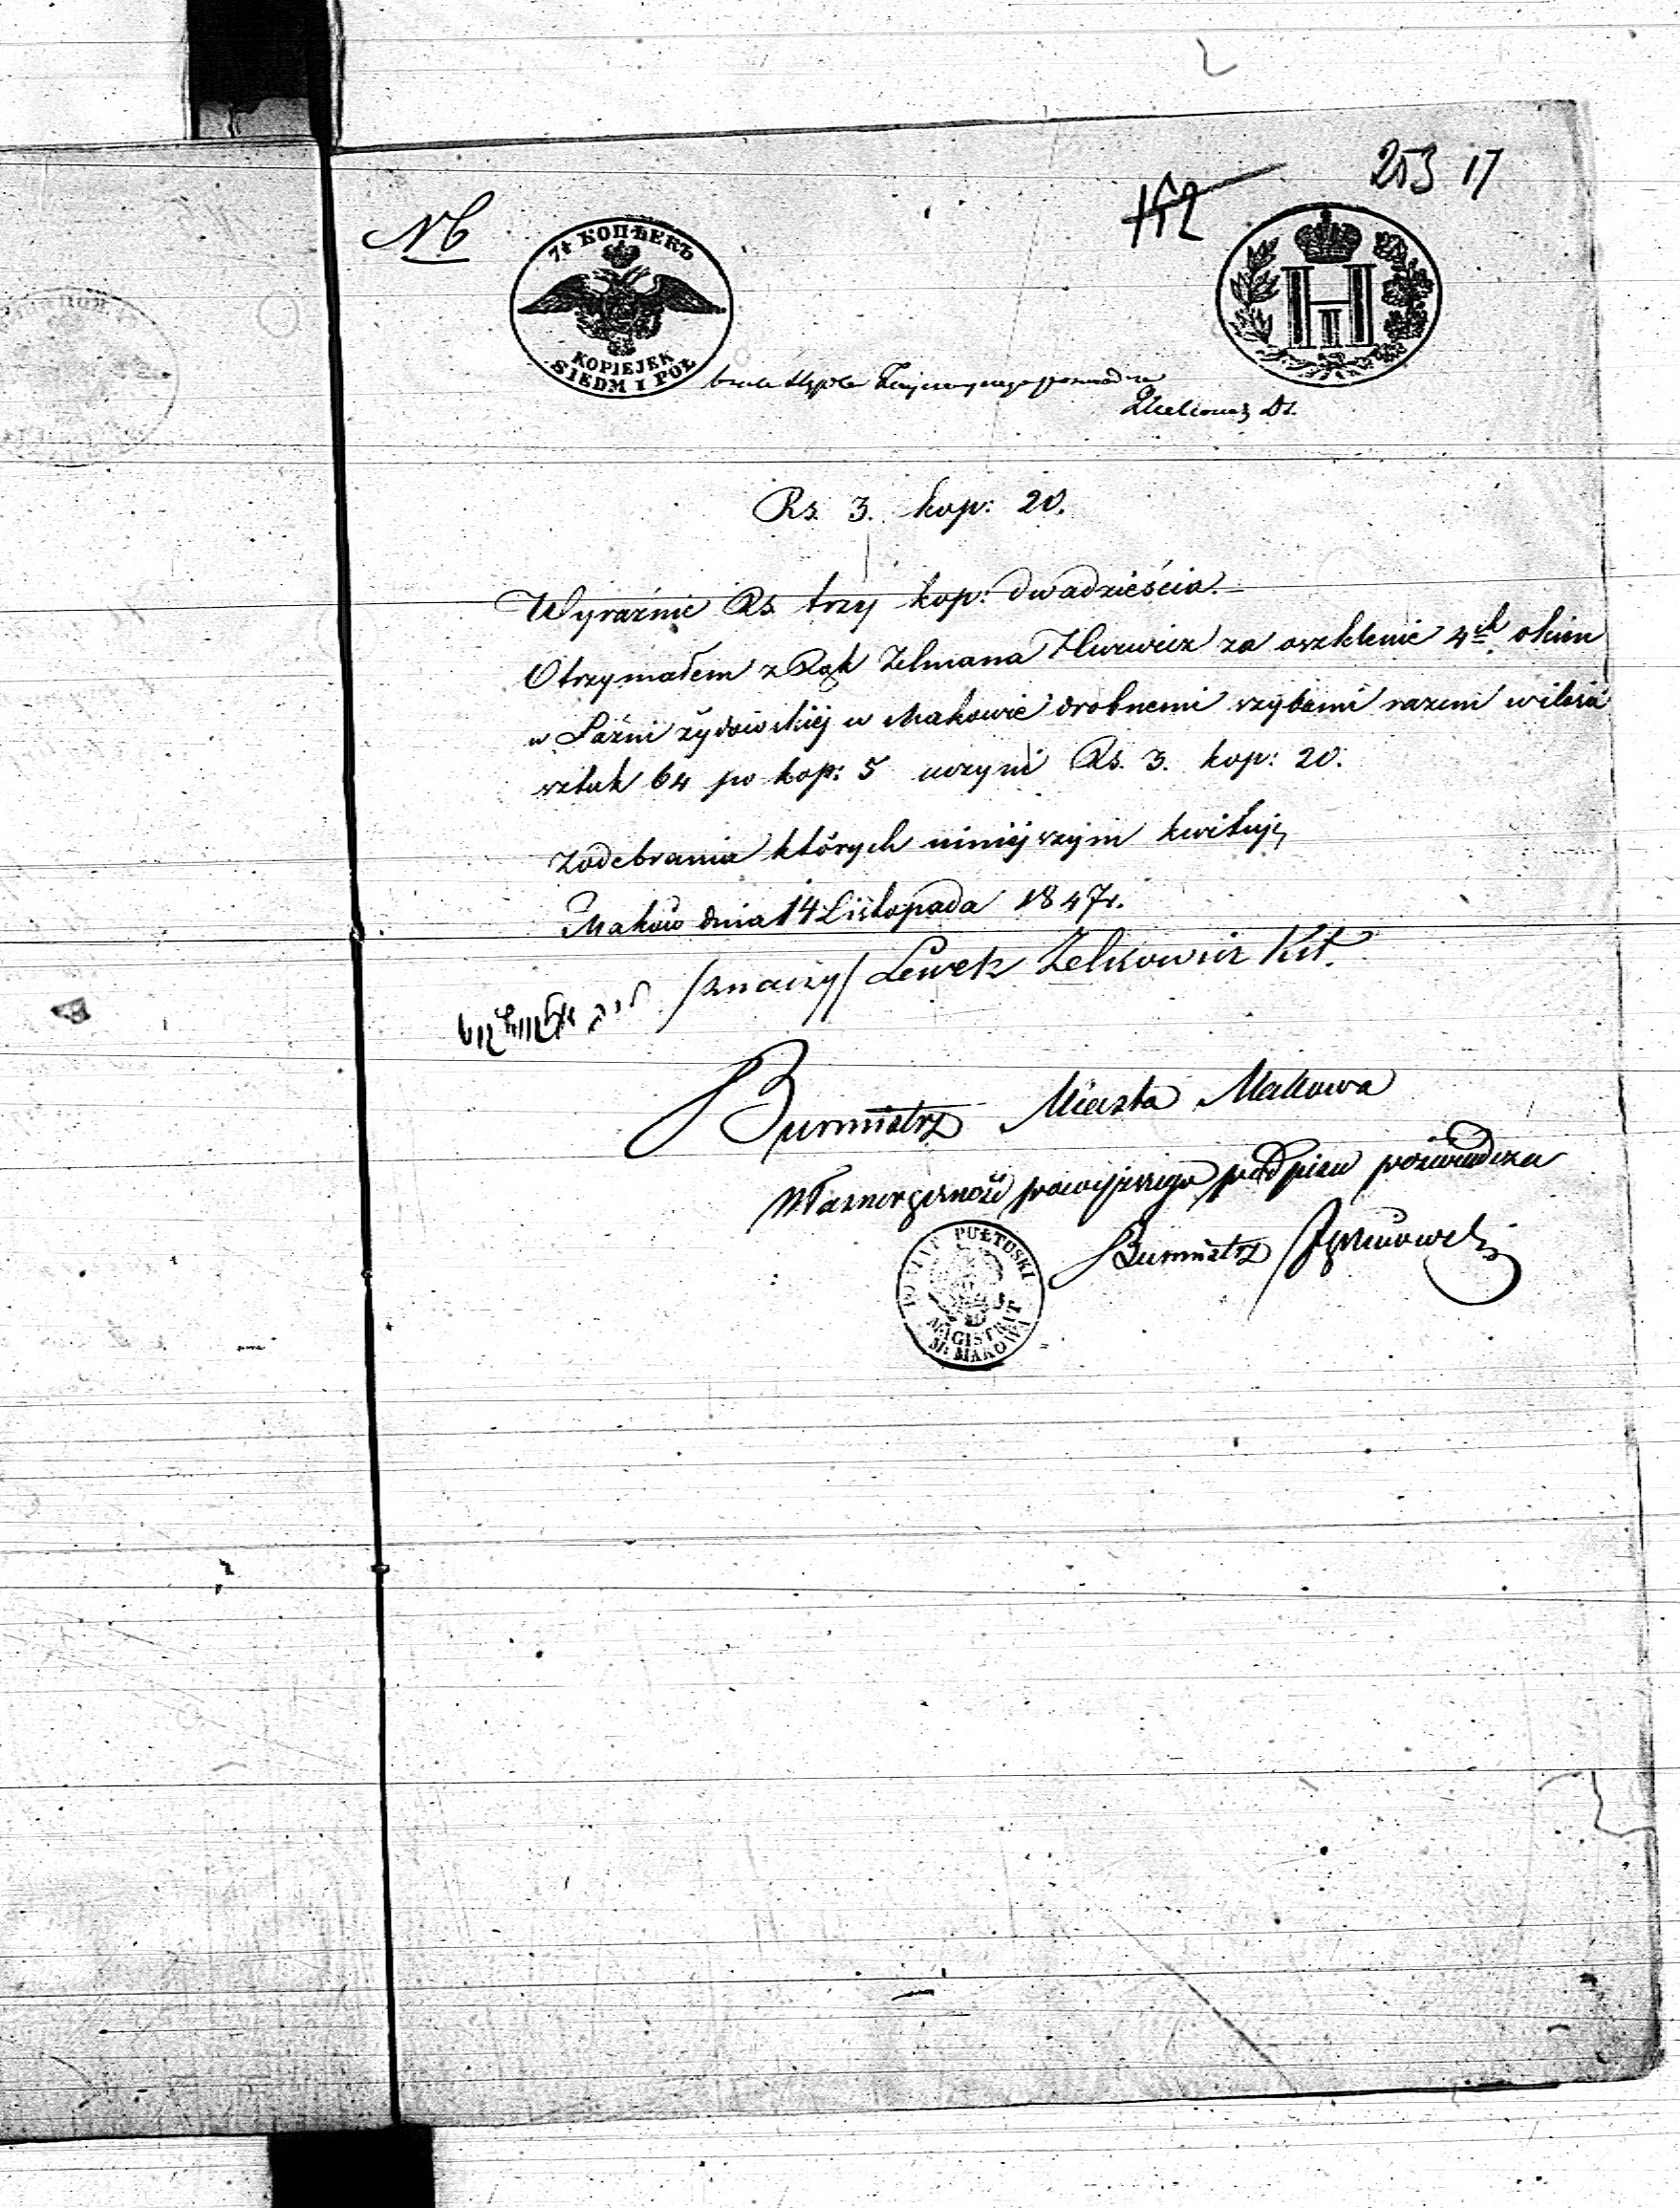 253 17
152
N6
7½ КОПѢЕКЪ
KOPIEJEK
SIEDM I PÓŁ
H
II
Rs. 3. kop: 20.
Wyraźnie Rs. trzy kop: dwadzieścia.
Otrzymałem z Rąk Zelmana Hurwicz za oszklenie 4ch okien
w Łaźni żydowskiej w Makowie drobnemi szybami razem
sztuk 64 po kop: 5 uczyni Rs. 3. kop: 20.
Z odebrania których niniejszym kwituję
Maków dnia 14 Listopada 1847r.
/znaczy/ Lewek Zelkowicz
Burmistrz Miasta Makowa
Własnoręczność powyższego podpisu poświadcza
Burmistrz
POWIAT PUŁTUSKI
MAGISTRAT
M. MAKOWA